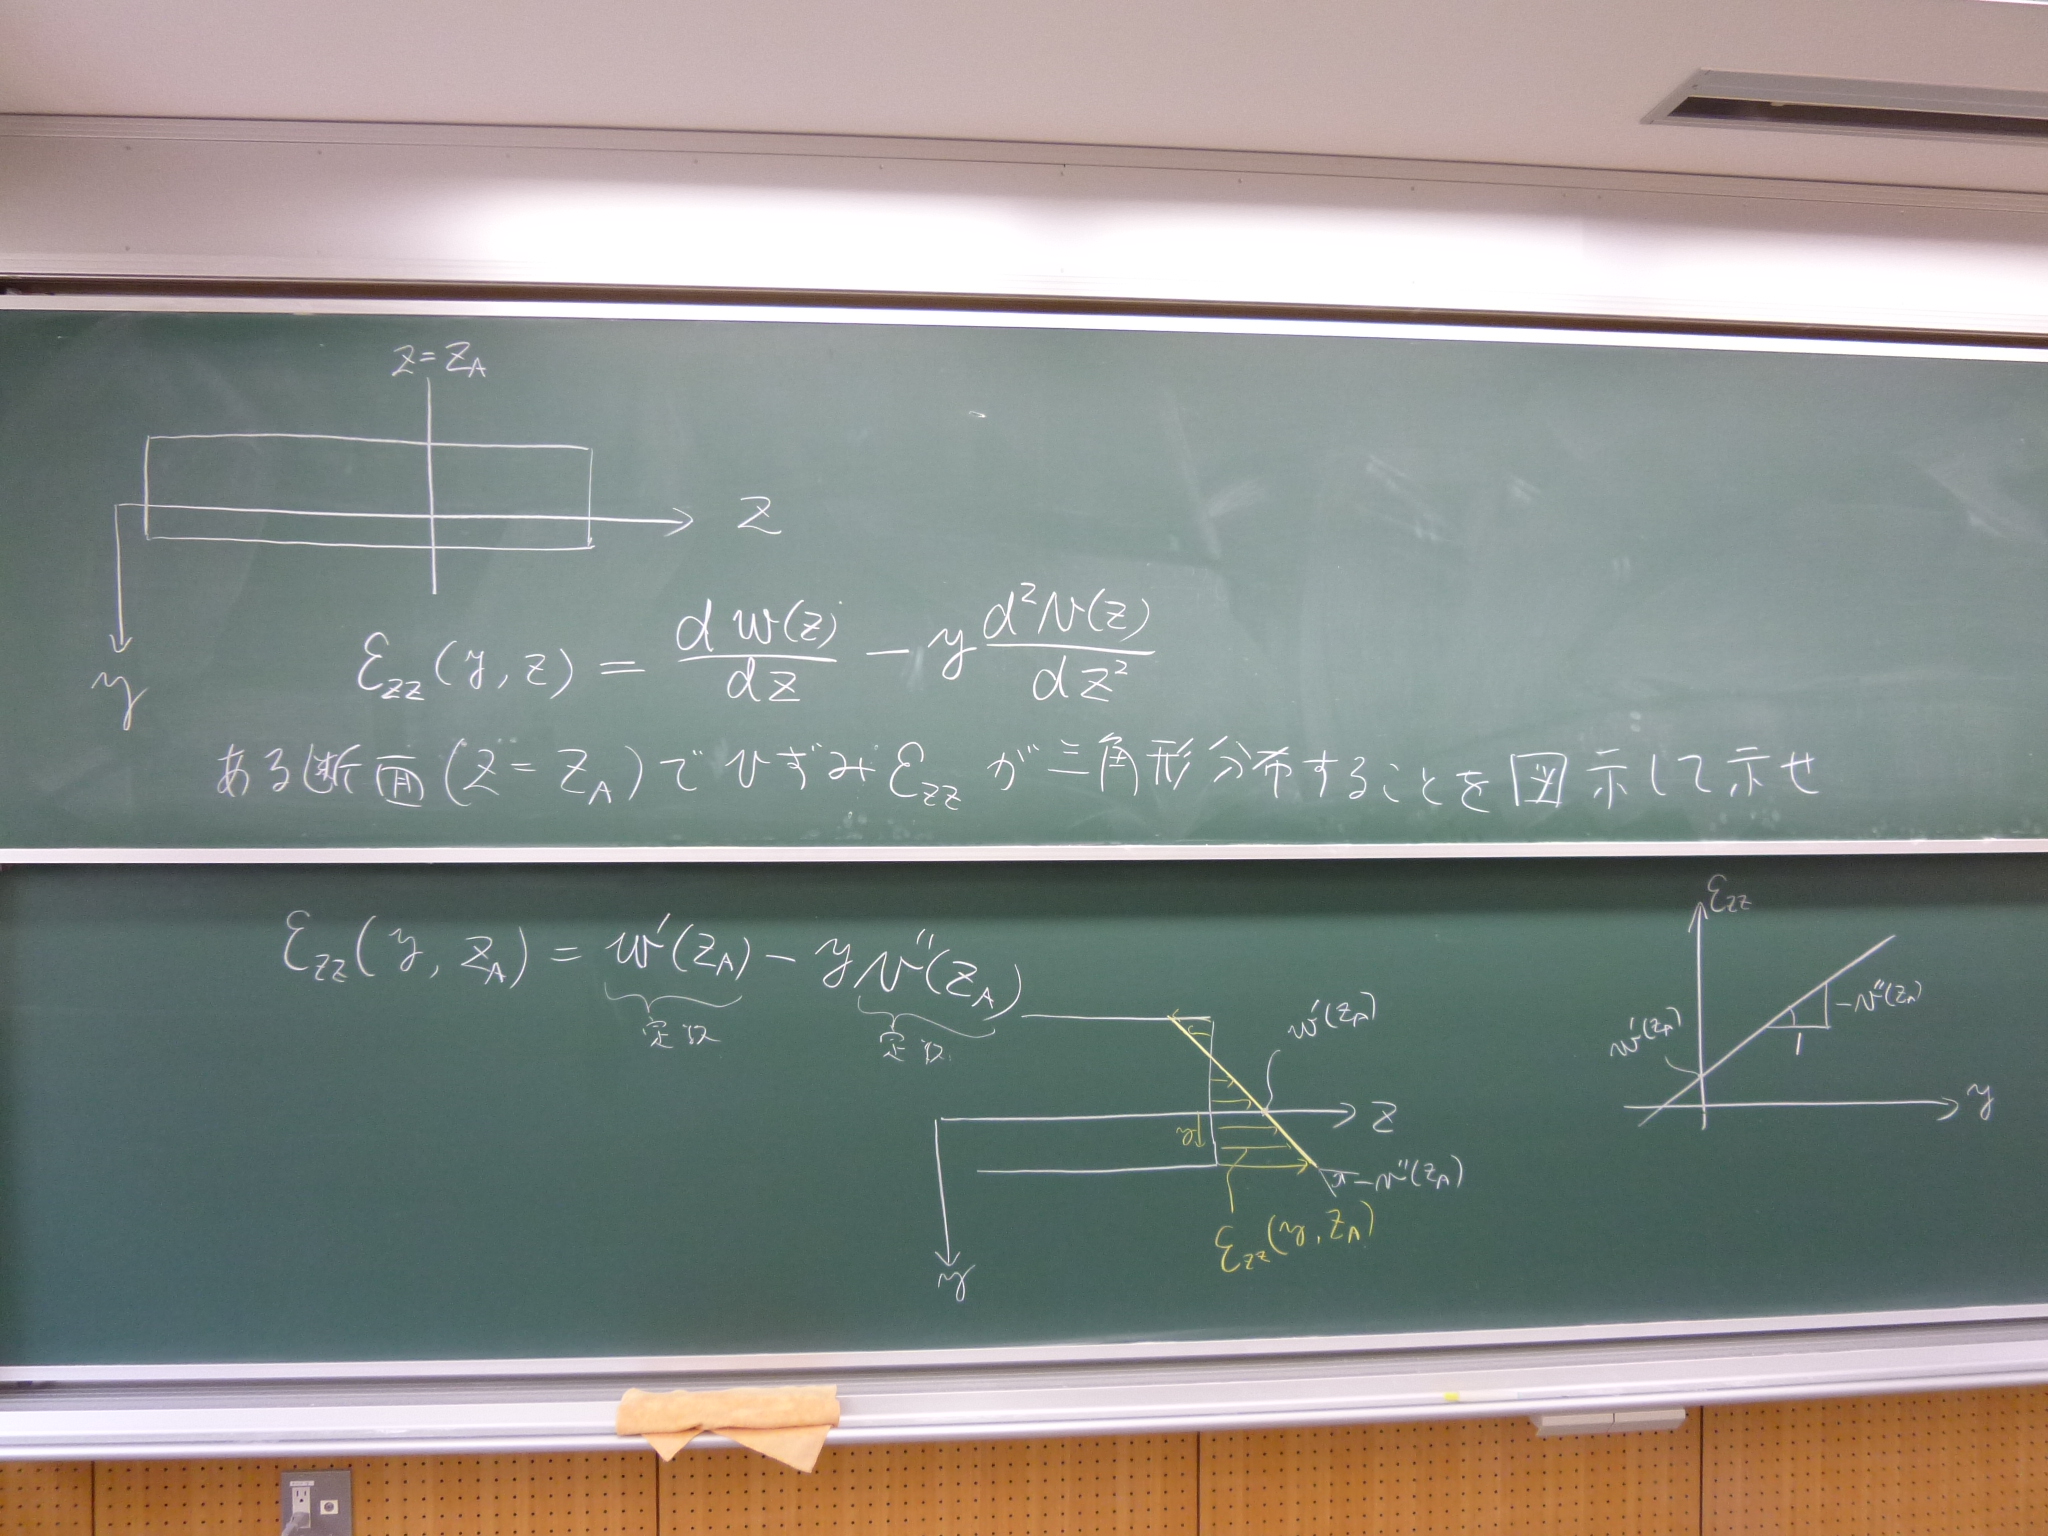 z = z_A
z
y
ε_zz(y, z) = dw(z)/dz − y d²v(z)/dz²
ある断面(z = z_A)でひずみε_zzが三角形分布することを図示して示せ
ε_zz(y, z_A) = w'(z_A) − y v''(z_A)
定数
定数
w'(z_A)
z
y
−v''(z_A)
ε_zz(y, z_A)
y
ε_zz
w'(z_A)
−v''(z_A)
1
y